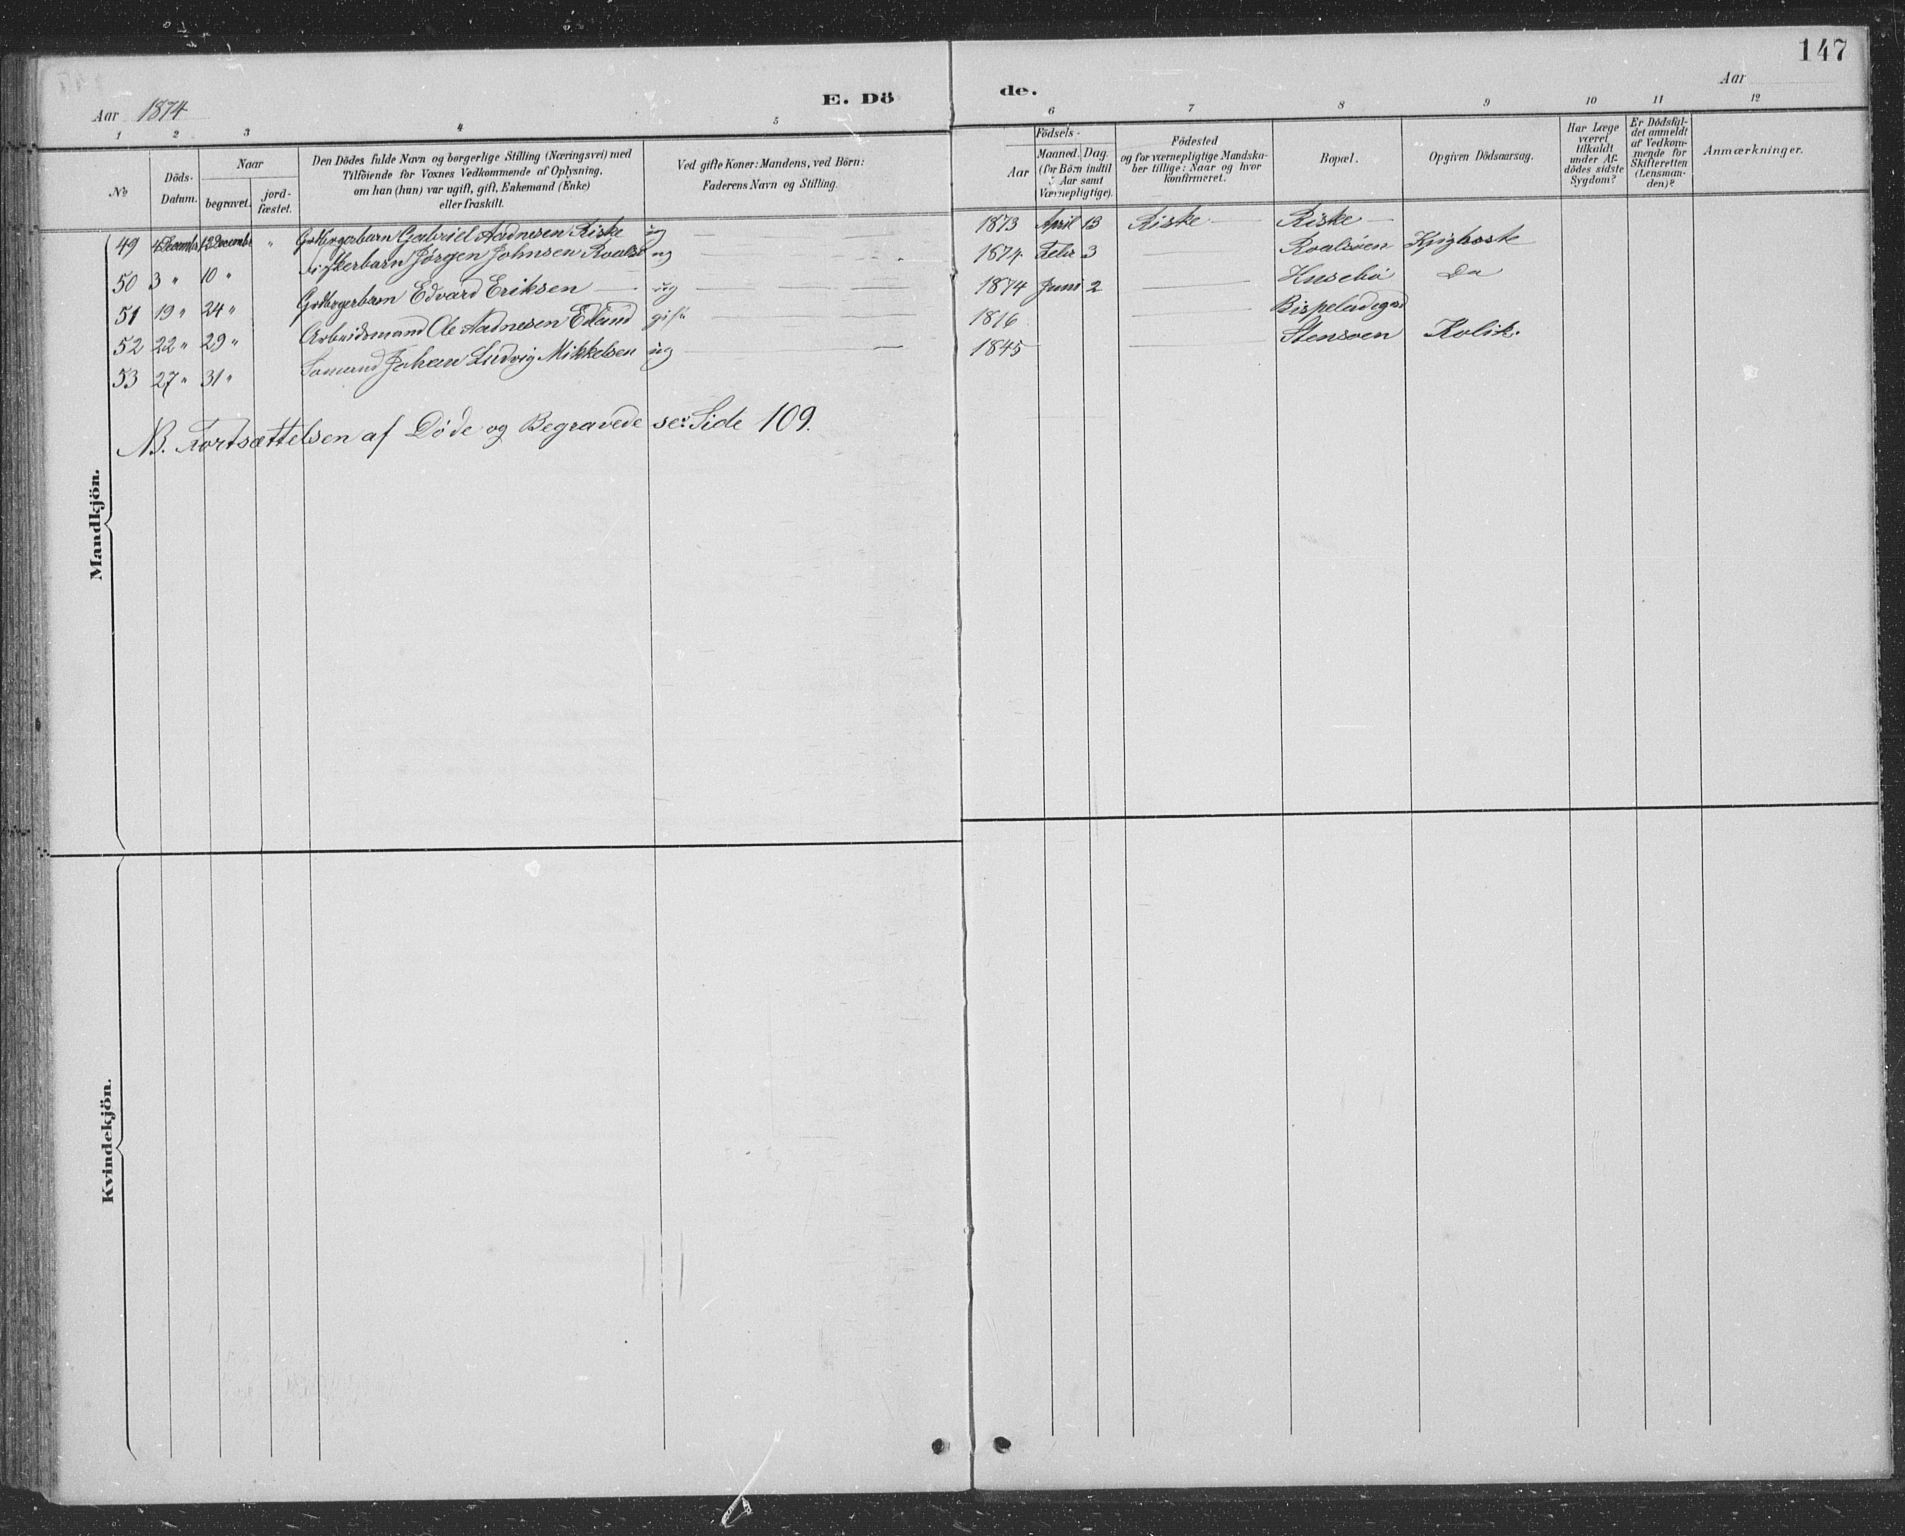 147
Aar 1874
E. Dö
de.
Aar
1 2 3 4 5 6 7 8 9 10 11 12
No
Döds-
Datum.
Naar
begravet.
jord-
fæstet.
Den Dödes fulde Navn og borgerlige Stilling (Næringsvei) med
Tilföiende for Voxnes Vedkommende af Oplysning,
om han (hun) var ugift, gift, Enkemand (Enke)
eller fraskilt.
Ved gifte Koner: Mandens, ved Börn:
Faderens Navn og Stilling.
Födsels-
Aar
Maaned. Dag.
(for Börn indtil
Aar samt
Værnepligtige).
Födested
og for værnepligtige Mandska-
ber tillige: Naar og hvor
konfirmeret.
Bopæl.
Opgiven Dödsaarsag.
Har Læge
været
tilkaldt
under Af-
dödes sidste
Sygdom?
Er Dödsfal-
det anmeldt
af Vedkom-
mende for
Skifteretten
(Lensman-
den)?
Anmærkninger.
49 4 Decembr 12 Decembr " Grdbrgerbarn Gabriel Aadnesen Riske ug 1873 April 13 Riske Riske
50 3 " 10 " Fiskerbarn Jørgen Johnsen Roalds ug 1874 Febr 3 Roalsøen Kighoste
51 19 " 24 " Grdbrgerbarn Edvard Eriksen ug 1874 Juni 2 Husebø Do
52 22 " 29 " Arbeidsmand Ole Aadnesen Edland gift 1816 Bispeladegrd
53 27 " 31 " Sømand Johan Ludvig Mikkelsen ug 1845 Stensøen Kolik.
NB. Fortsættelsen af Døde og Begravede se: Side 109.
Mandkjön.
Kvindekjön.